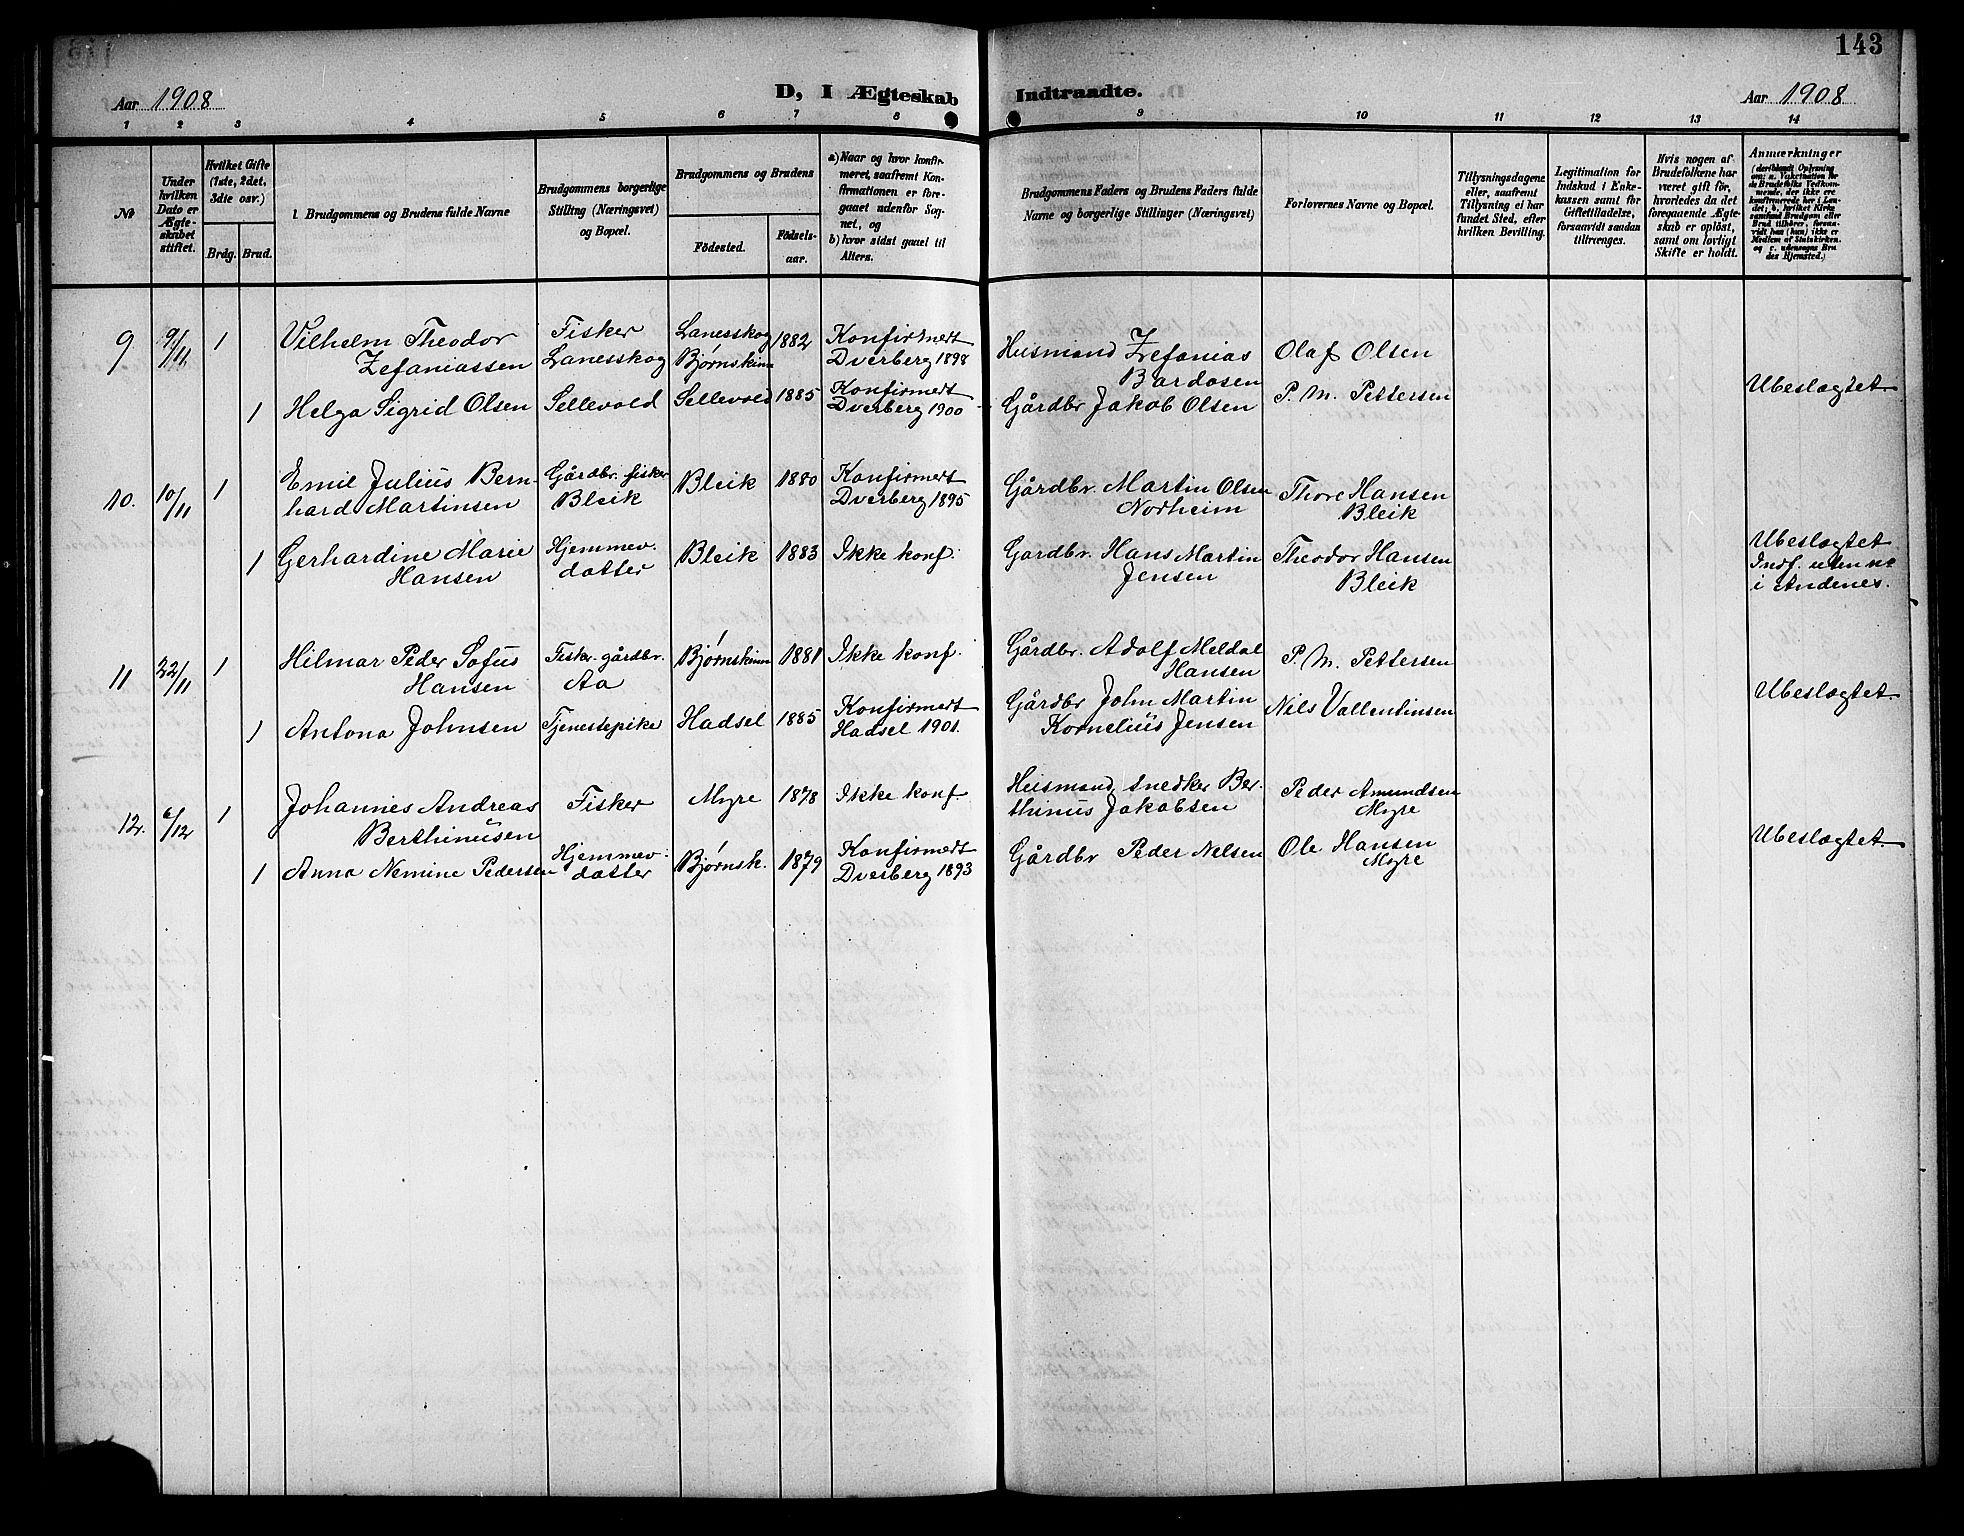 143
Aar 1908
D, I Ægteskab Indtraadte.
Aar 1908
1 2 3 4 5 6 7 8 9 10 11 12 13 14
№
Under hvilken Dato er Ægteskabet stiftet.
Hvilket Gifte (1ste, 2det, 3die osv.)
Brdg. Brud.
1. Brudgommens og Brudens fulde Navne
Brudgommens borgerlige Stilling (Næringsvei) og Bopæl.
Brudgommens og Brudens
Födested.
Födselsaar.
a) Naar og hvor konfirmeret, saafremt Konfirmationen er foregaaet udenfor Sognet, og
b) hvor sidst gaaet til Alters.
Brudgommens Faders og Brudens Faders fulde Navne og borgerlige Stillinger (Næringsvei)
Forlovernes Navne og Bopæl.
Tillysningsdagene eller, saafremt Tillysning ei har fundet Sted, efter hvilken Bevilling.
Legitimation for Indskud i Enkekassen samt for Giftetilladelse, forsaavidt saadan tiltrænges.
Hvis nogen af Brudefolkene har været gift för, hvorledes da det foregaaende Ægteskab er oplöst, samt om lovligt Skifte er holdt.
Anmærkninger
(deriblandt Oplysning om: a. Vakcination for de Brudefolks Vedkommende, der ikke ere konfirmerede her i Landet; b. hvilket Kirkesamfund Brudgom eller Brud tilhører, forsaavidt han (hun) ikke er Medlem af Statskirken, og c. udensogns Brudes Hjemsted.)
9 9/11 1 Vilhelm Theodor Fisker Lanesskog 1882 Konfirmert Husmand Zefanias Olaf Olsen
Zefaniassen Lanesskog Bjørnskinn Dverberg 1898 Bardosen
1 Helga Sigrid Olsen Sellevold Sellevold 1885 Konfirmert Gårdbr Jakob Olsen P. M. Pettersen Ubeslægtet
Dverberg 1900
10. 10/11 1 Emil Julius Bern- Gårdbr. fisker Bleik 1880 Konfirmert Gårdbr. Martin Olsen Thore Hansen
hard Martinsen Bleik Dverberg 1895 Nordheim Bleik
1 Gerhardine Marie Hjemmev. Bleik 1883 Ikke konf. Gårdbr. Hans Martin Theodor Hansen Ubeslægtet
Hansen datter Jensen Bleik Indf. uten nr
i Andenes.
11 22/11 1 Hilmar Peder Sofus Fisker. gårdbr. Bjørnskinn 1881 Ikke konf. Gårdbr. Adolf Meldal P. M. Pettersen
Hansen Aa Hansen
1 Antona Johnsen Tjenestepike Hadsel 1885 Konfirmert Gårdbr John Martin Nils Vallentinsen Ubeslægtet
Hadsel 1901. Kornelius Jensen
12. 6/12 1 Johannes Andreas Fisker Myre 1878 Ikke konf. Husmand, snedker Ber- Peder Amundsen
Berthinusen thinus Jakobsen Myre
1 Anna Nemine Pedersen Hjemmev- Bjørnsk. 1879 Konfirmert Gårdbr Peder Nelsen Ole Hansen Ubeslægtet
datter Dverberg 1893 Myre